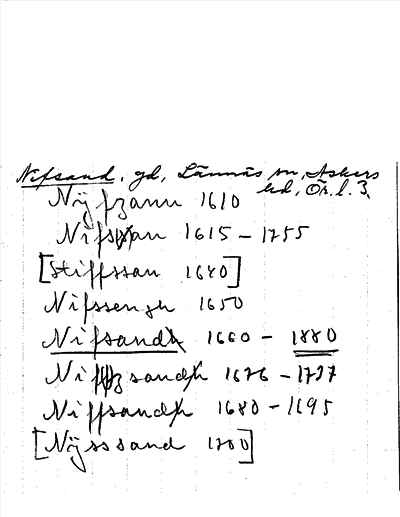 Nifsand, gd, Lännäs sn, Askers
hd, Ör. l. 3.
Nÿfzann 1610
Nifszan 1615 – 1755
[Stiffssan 1640]
Nifssengh 1650
Nifsandh 1660 – 1880
sandh 1676 – 1737
Niffsandh 1680 – 1695
[Nÿsssand 1700]